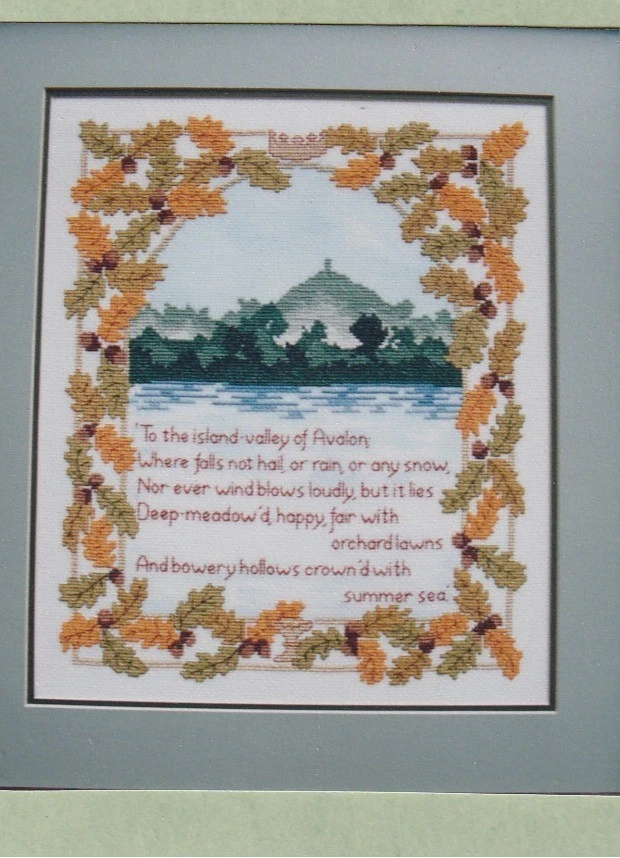 'To the island-valley of Avalon;
Where falls not hail, or rain, or any snow,
Nor ever wind blows loudly, but it lies
Deep-meadow'd, happy, fair with
orchard lawns
And bowery hollows crown'd with
summer sea.'